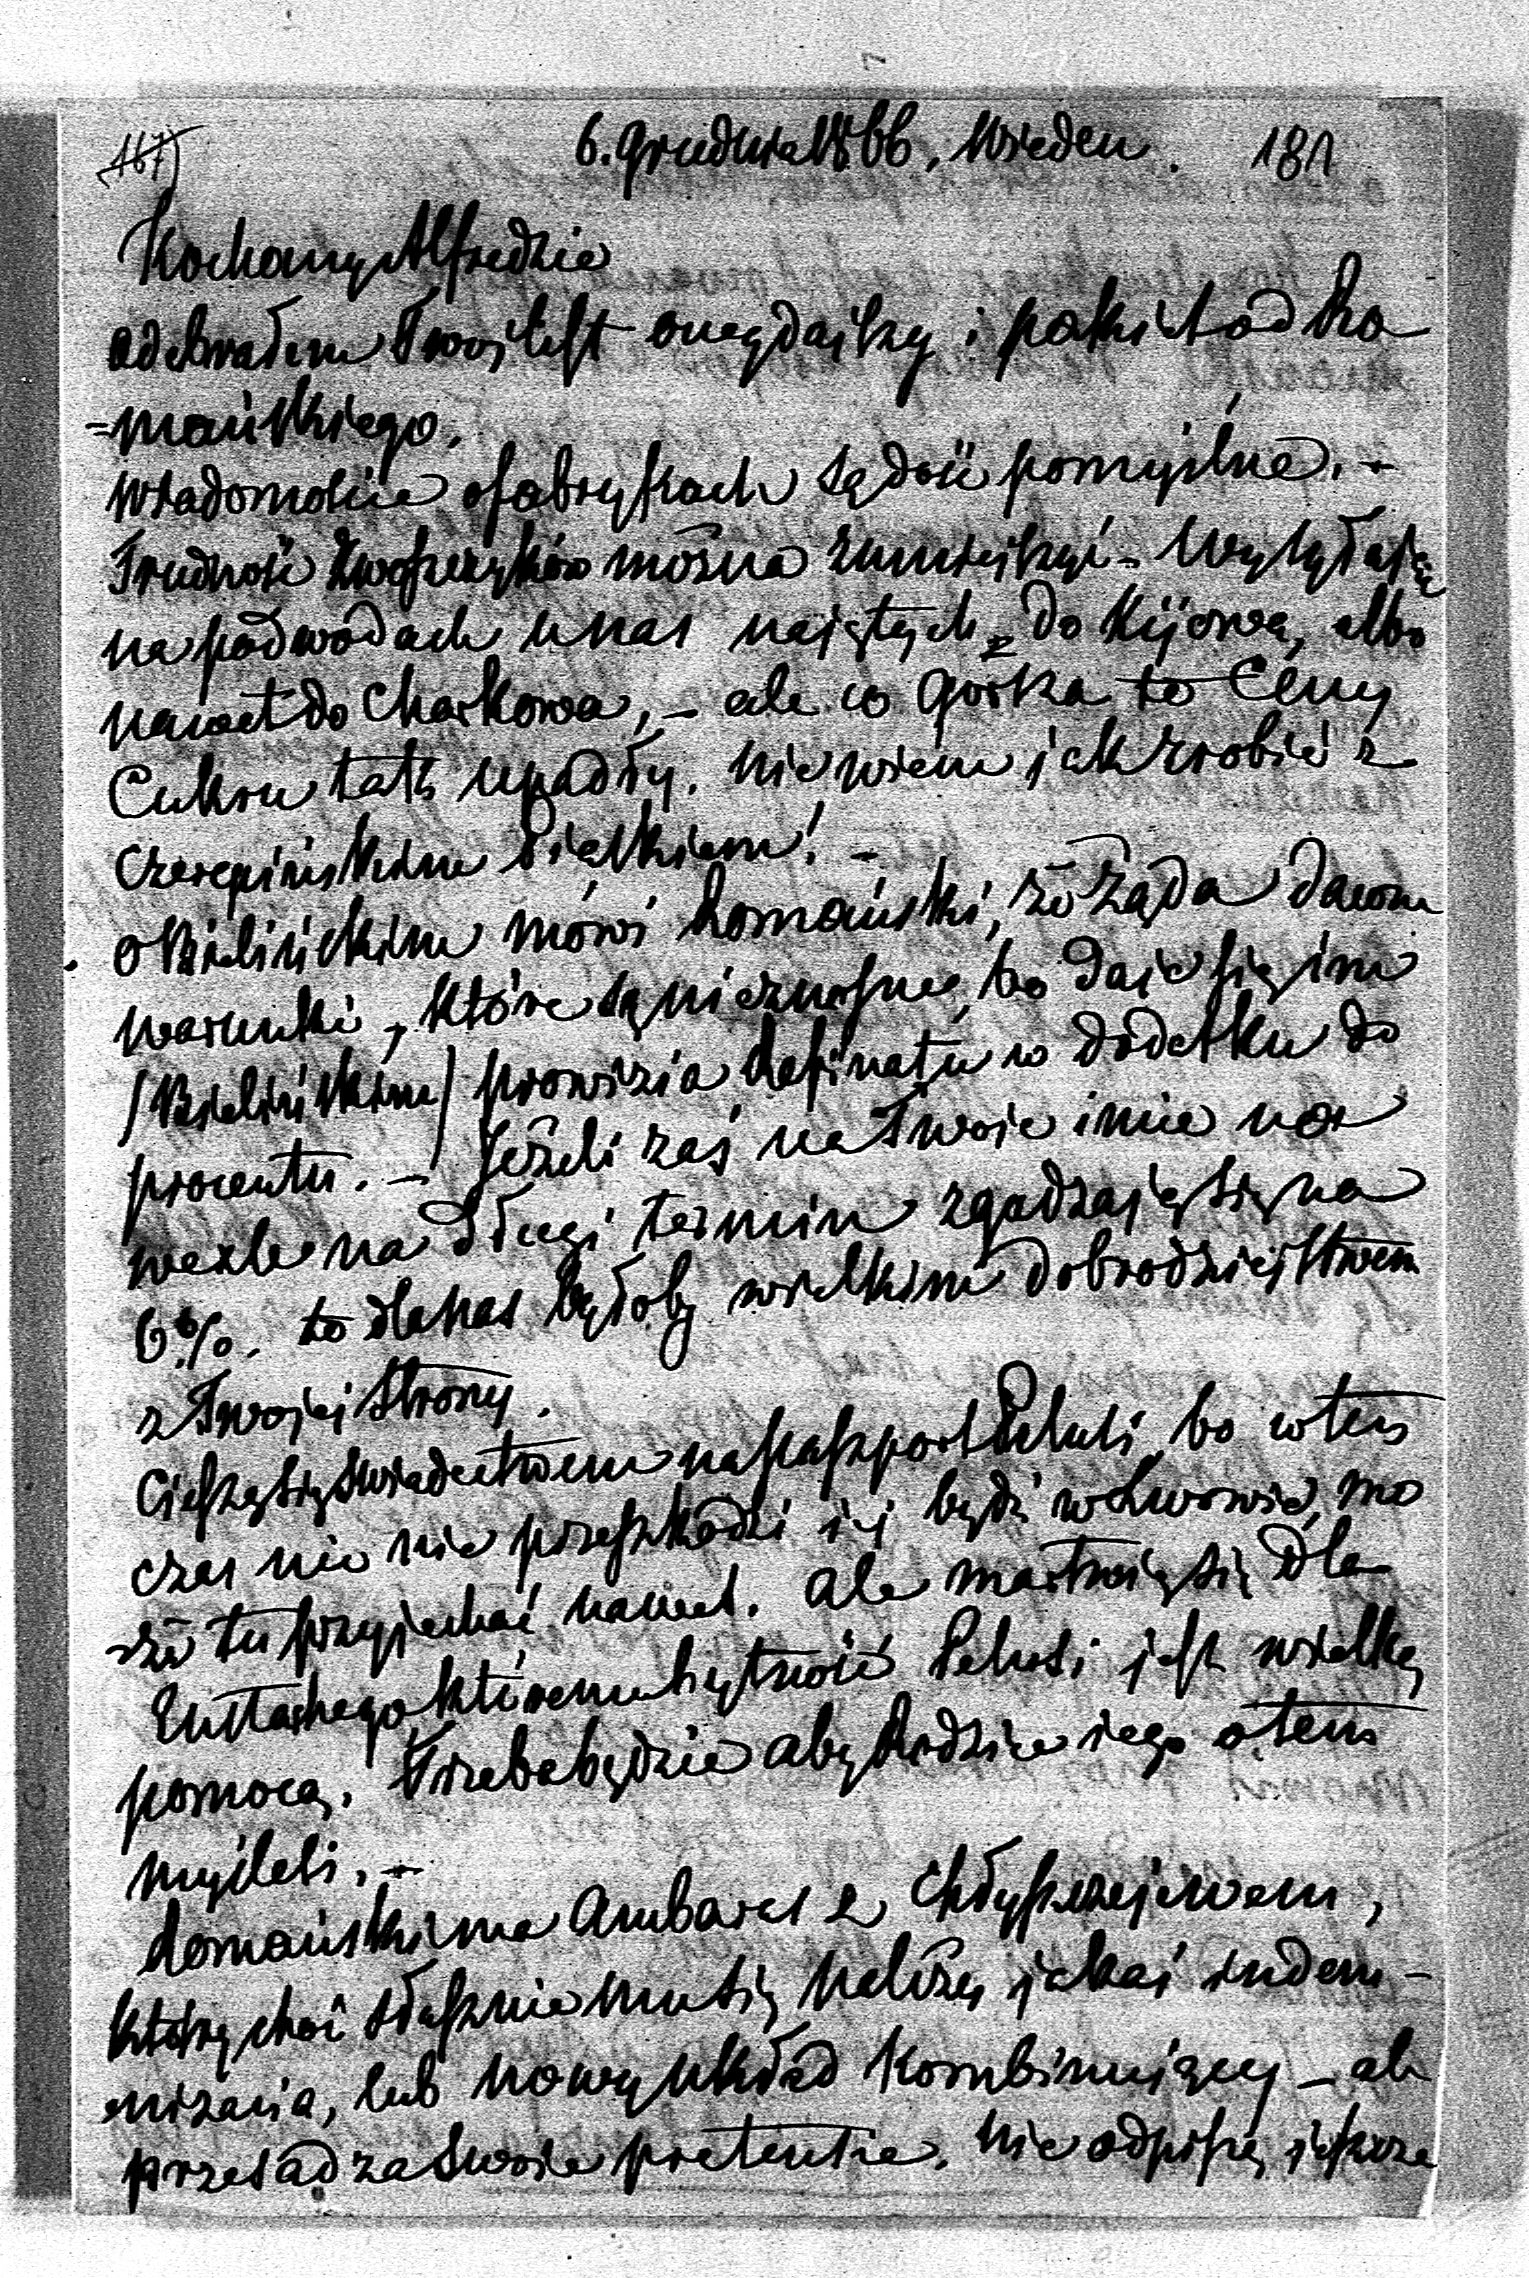 167)
6. Grudnia 1866, Wiedeń. 181
Kochany Alfredzie
odebrałem Twój list onegdajszy i pakiet od Ro
=mańskiego.
Wiadomości o fabrykach są dość pomyślne. –
Trudność można zmniejszyć – Wysyłając
na podwodach u nas najętych – do Kijowa, albo
nawet do Charkowa, – ale co gorsza to Ceny
Cukru tak upadły. Nie wiem jak zrobić z
Czerepińskiem Piątkiem! –
O Bielińskim mówi Romański, że żąda dawne
warunki, które są nieznośne, bo daje się im
/Bielińskim/ prowizia Rafinatu w dodatku do
procentu. – Jeżeli zaś na Twoje imie na
wexle na długi termin zgadzają się na
6%. to dla nas byłoby wielkim dobrodziejstwem
z Twojej Strony.
Cieszę się świadectwem na paszport Pelusi, bo wten
czas nic nie przeszkodzi jej być w Lwowie, mo
=że tu przyjechać nawet. ale martwię się dla
Eustachego, któremu bytność Pelusi jest wielką
pomocą. Trzeba będzie aby Rodzice jego o tem
myśleli. –
Romański ma Ambaras z
który choć słusznie mu się należy jakaś indem-
nizacia, lub nowy układ kombinujący – ale
przesadza swoje pretensie. Nie odpiszę jeszcze